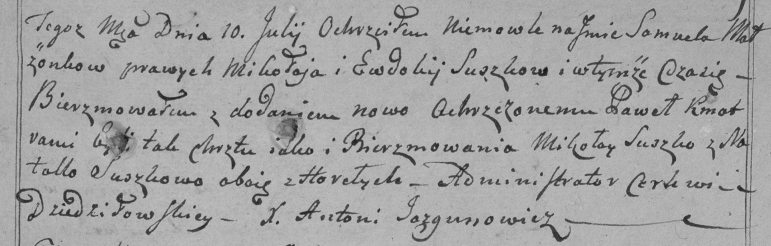 Tegoż Mca Dnia 10. Julij Ochrzciłem Niemowle na Jmie Samuela Mał
żonkow prawych Mikołaja i Ewdokij Suszkow i w tymże Czasie –
Bierzmowałem z dodaniem nowo Ochrzczonemu Paweł Kmot
rami byli tak chrztu iako i Bierzmowania Mikołay Suszko z Na
talla Suszkowo oboie z Horelych – Administrator Cerkwi –
Dziedziłowskiey – X. Antoni Jazgunowicz